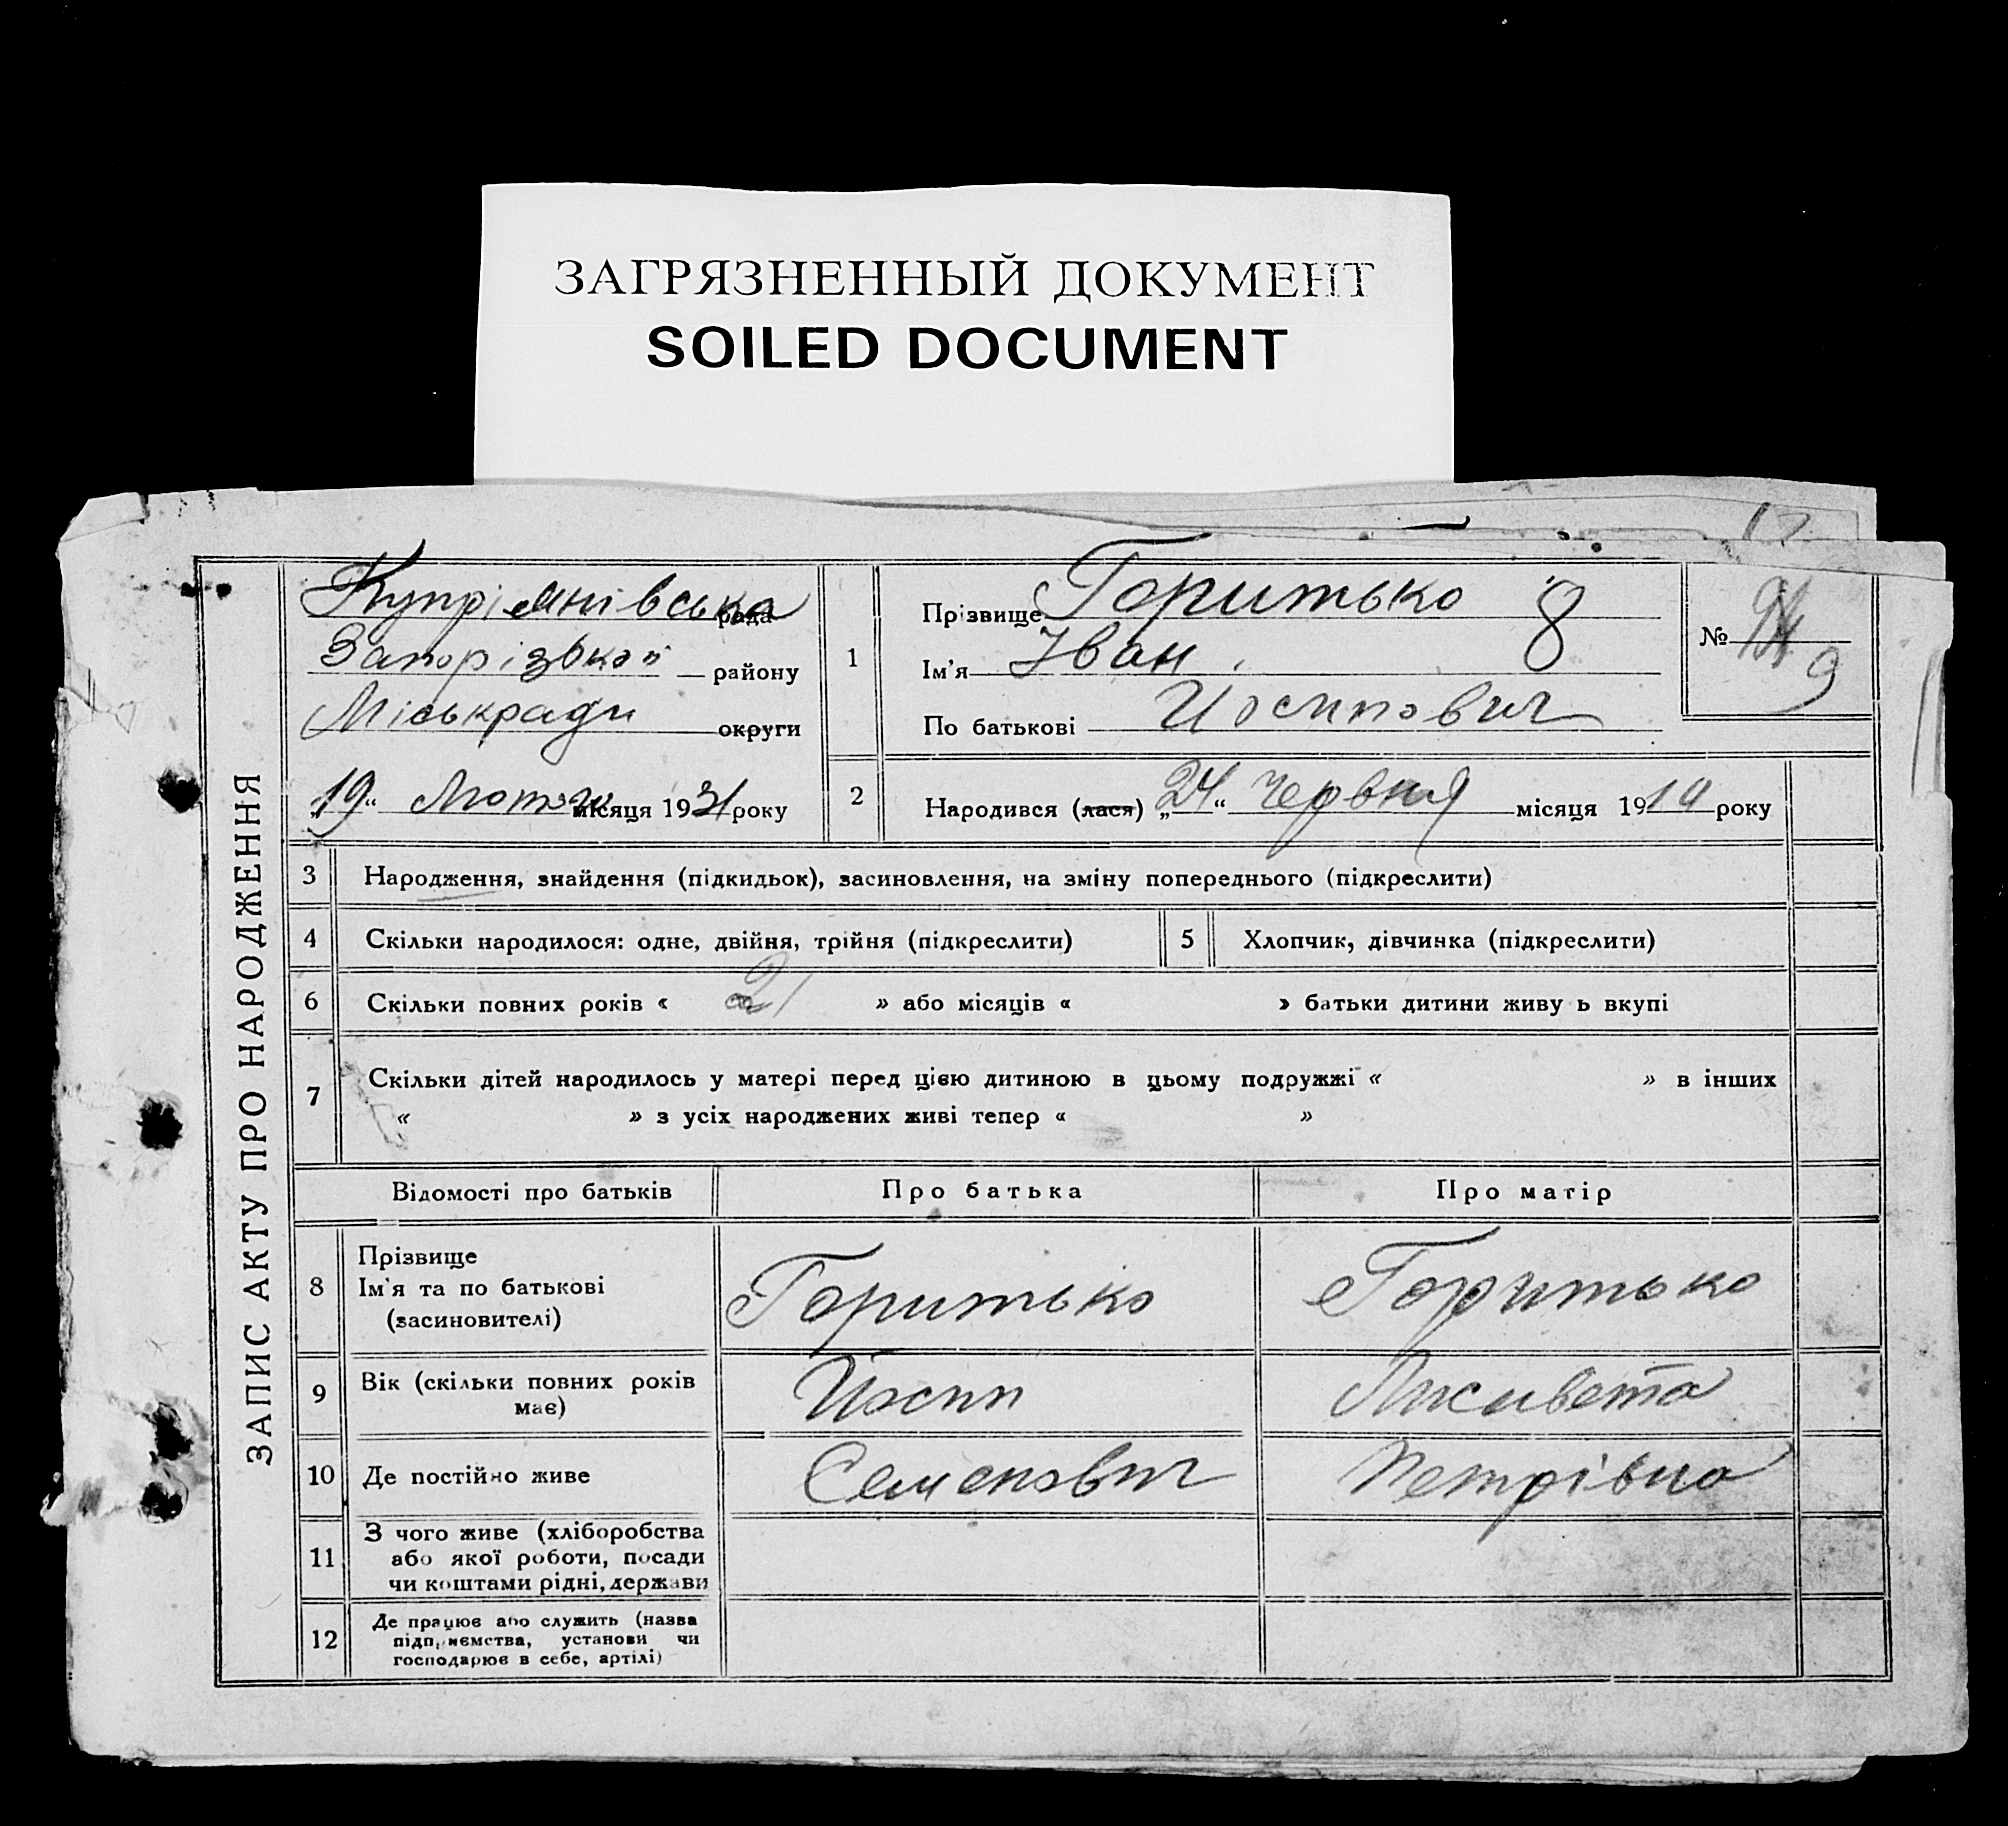 ЗАГРЯЗНЕННЫЙ ДОКУМЕНТ
SOILED DOCUMENT
ЗАПИС АКТУ ПРО НАРОДЖЕННЯ
Купріянівська рада
Запорізької району
Міськради округи
„19“ Лютого місяця 1931 року
1
Прізвище Горитько 8
Ім'я Іван
По батькові Иосипович
№ 9
2
Народився (лася) „24“ Червня місяця 1910 року
3 Народження, знайдення (підкидьок), засиновлення, на зміну попереднього (підкреслити)
4 Скільки народилося: одне, двійня, трійня (підкреслити)
5 Хлопчик, дівчинка (підкреслити)
6 Скільки повних років « 21 » або місяців « » батьки дитини живу ь вкупі
7 Скільки дітей народилось у матері перед цією дитиною в цьому подружжі « » в інших
« » з усіх народжених живі тепер « »
Відомості про батьків Про батька Про матір
8 Прізвище
Ім'я та по батькові
(засиновителі)
Горитько Горитько
9 Вік (скільки повних років
має)
Йосип Лисивета
10 Де постійно живе Семенович Петрівна
11 З чого живе (хліборобства
або якої роботи, посади
чи коштами рідні, держави
12 Де працює або служить (назва
підприємства, установи чи
господарює в себе, артілі)